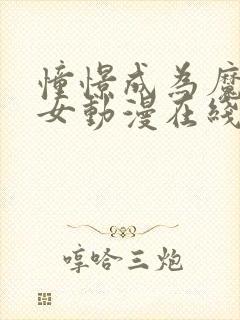 憧憬成為魔
女動漫在綫
哼哈三炮